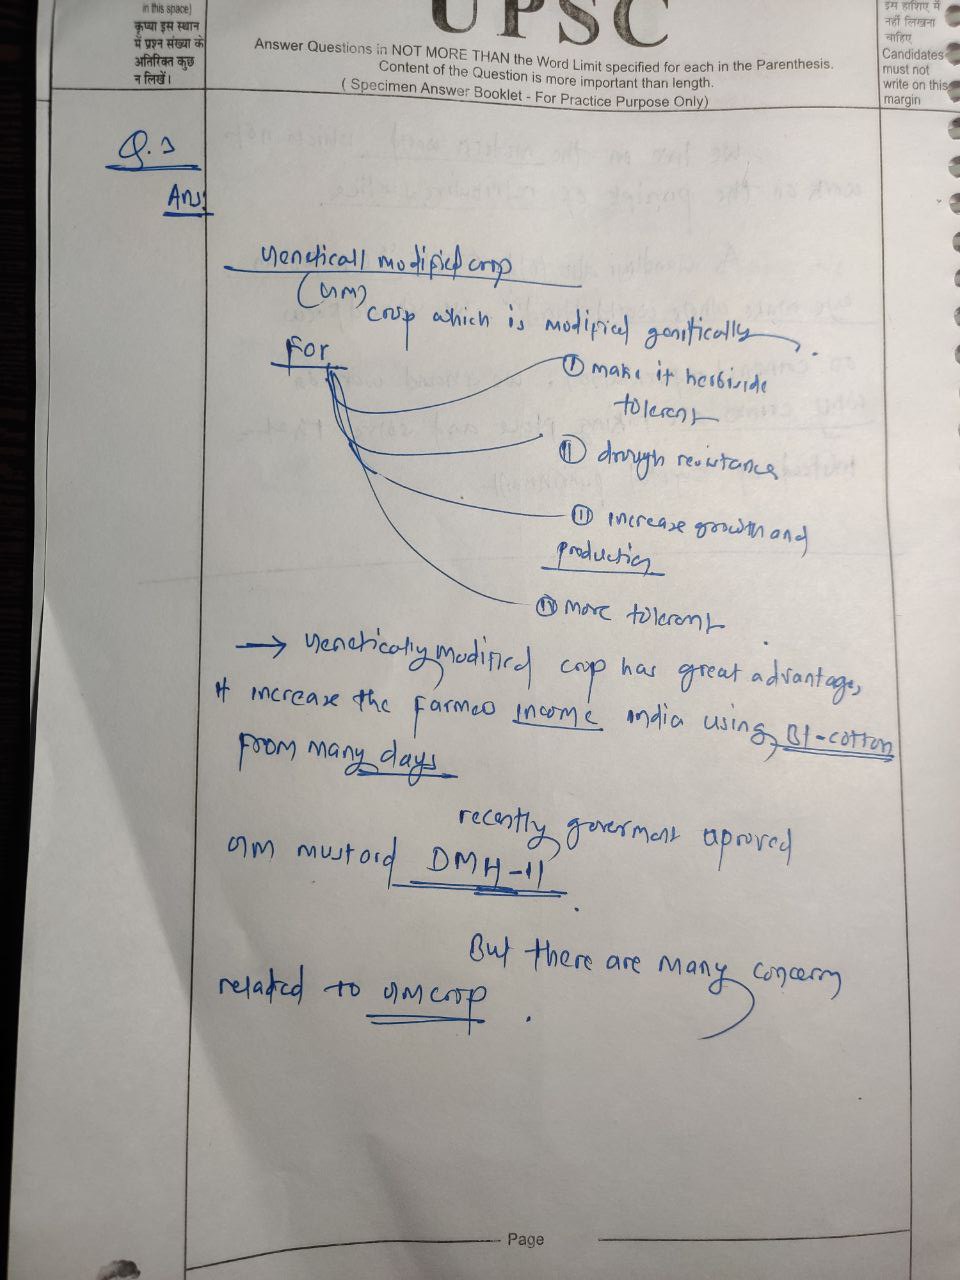 in this space)
कृप्या इस स्थान
में प्रश्न संख्या के
अतिरिक्त कुछ
न लिखें।
UPSC
Answer Questions in NOT MORE THAN the Word Limit specified for each in the Parenthesis.
Content of the Question is more important than length.
( Specimen Answer Booklet - For Practice Purpose Only)
इस हाशिए में
नहीं लिखना
चाहिए
Candidates
must not
write on this
margin
Q.3
Ans:
Geneticall modified crop
(GM)
crop which is modified genitically.
For
(I) make it herbivide
tolerent
(II) drough resistance
(III) increase growth and
production
(IV) more tolerent.
→ Genetically modified crop has great advantage,
it increase the farmeo income india using Bt-cotton
from many days
recently goverment aproved
GM mustard DMH-11.
But there are many concern
related to GM crop.
Page